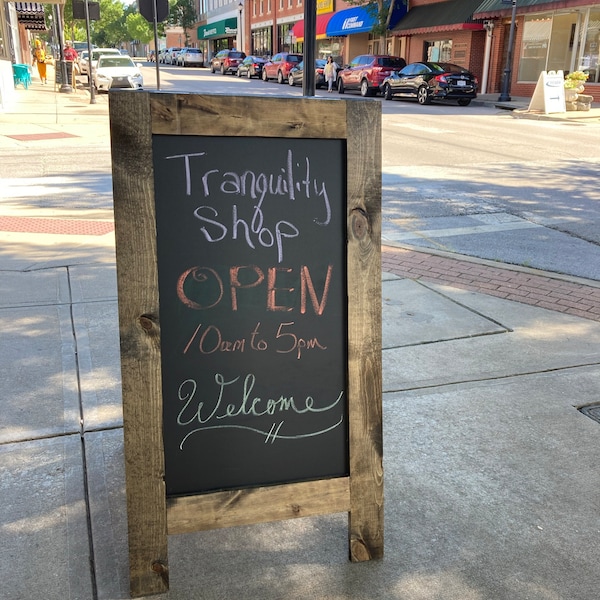 Tranquility
Shop
OPEN
10am to 5pm
Welcome